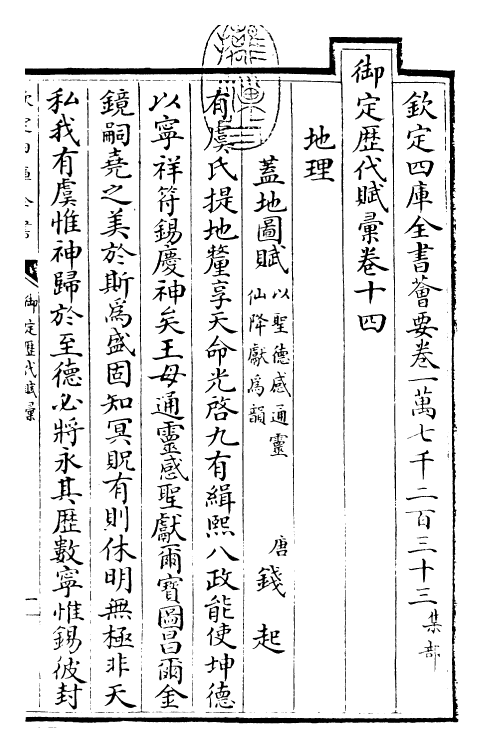 欽定四庫全書薈要卷一萬七千二百三十三 集部
御定歴代賦彙卷十四
地理
蓋地圖賦 以聖德感通靈仙降獻為韻 唐 錢起
有虞氏提地釐享天命光啓九有緝熙八政能使坤德
以寧祥符錫慶神矣王母通靈感聖獻爾寶圖昌爾金
鏡嗣堯之美於斯為盛固知冥貺有則休明無極非天
私我有虞惟神歸於至德必將永其歴數寧惟錫彼封
御定歴代賦彙
一